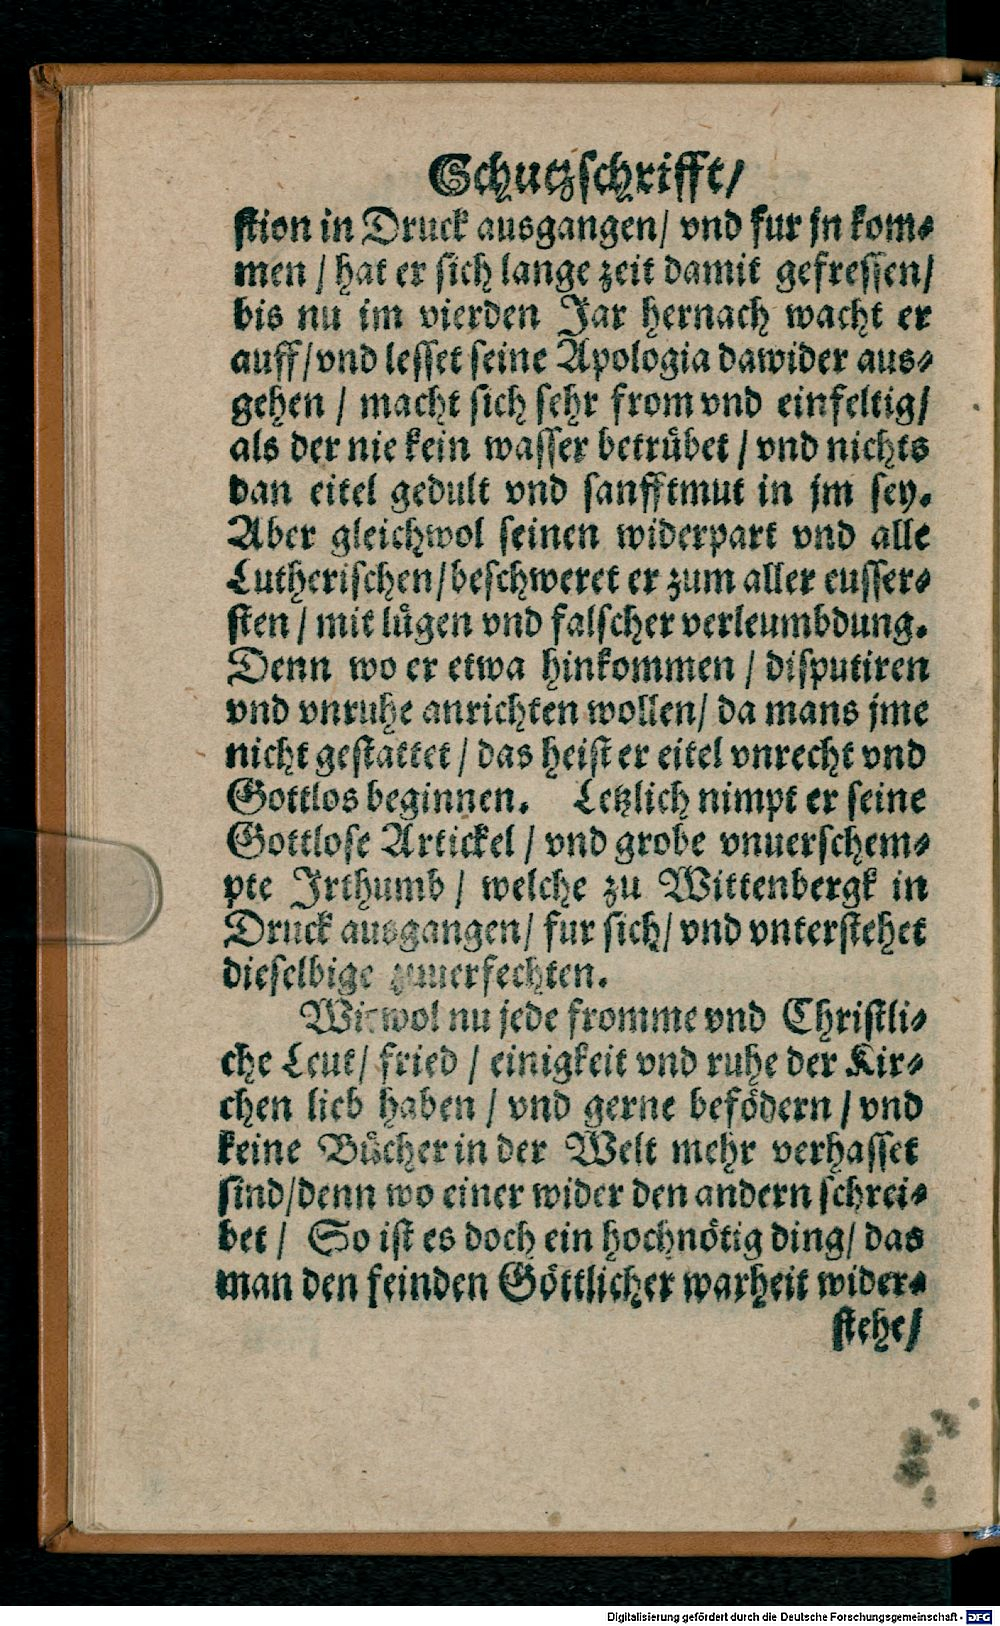 Schutzschrifft/
stion in Druck ausgangen/ vnd fur jn kom⸗
men / hat er sich lange zeit damit gefressen/
bis nu im vierden Jar hernach wacht er
auff/vnd lesset seine Apologia dawider aus⸗
gehen / macht sich sehr from vnd einfeltig/
als der nie kein wasser betrübet / vnd nichts
dan eitel gedult vnd sanfftmut in jm sey.
Aber gleichwol seinen widerpart vnd alle
Lutherischen/beschweret er zum aller eusser⸗
sten / mit lügen vnd falscher verleumbdung.
Denn wo er etwa hinkommen / disputiren
vnd vnruhe anrichten wollen/ da mans jme
nicht gestattet / das heist er eitel vnrecht vnd
Gottlos beginnen. Letzlich nimpt er seine
Gottlose Artickel / vnd grobe vnuerschem⸗
pte Jrthumb / welche zu Wittenbergk in
Druck ausgangen/ fur sich/ vnd vnterstehet
dieselbige zuuerfechten.
Wiewol nu jede fromme vnd Christli⸗
che Leut/ fried / einigkeit vnd ruhe der Kir⸗
chen lieb haben / vnd gerne befödern / vnd
keine Bücher in der Welt mehr verhasset
sind/denn wo einer wider den andern schrei⸗
bet / So ist es doch ein hochnötig ding/ das
man den feinden Göttlicher warheit wider⸗
stehe/
Digitalisierung gefördert durch die Deutsche Forschungsgemeinschaft - DFG